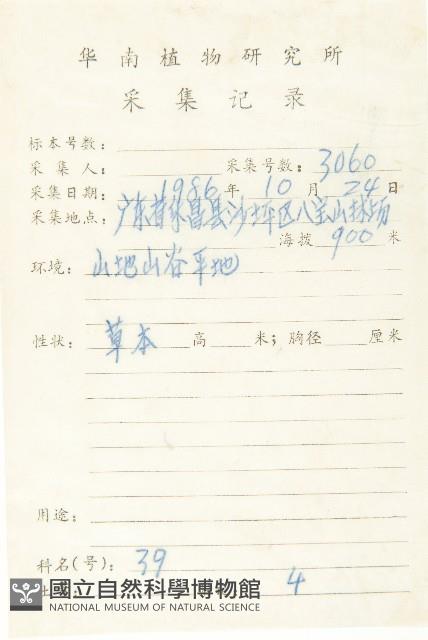 华南植物研究所
采集记录
标本号数:
采集人: 采集号数: 3060
采集日期: 1986年10月24日
采集地点: 广东省乐昌县沙坪区八宝山林场
海拨 900 米
环境: 山地山谷平地
性状: 草本 高 米; 胸径 厘米
用途:
科名(号): 39
4
國立自然科學博物館
NATIONAL MUSEUM OF NATURAL SCIENCE